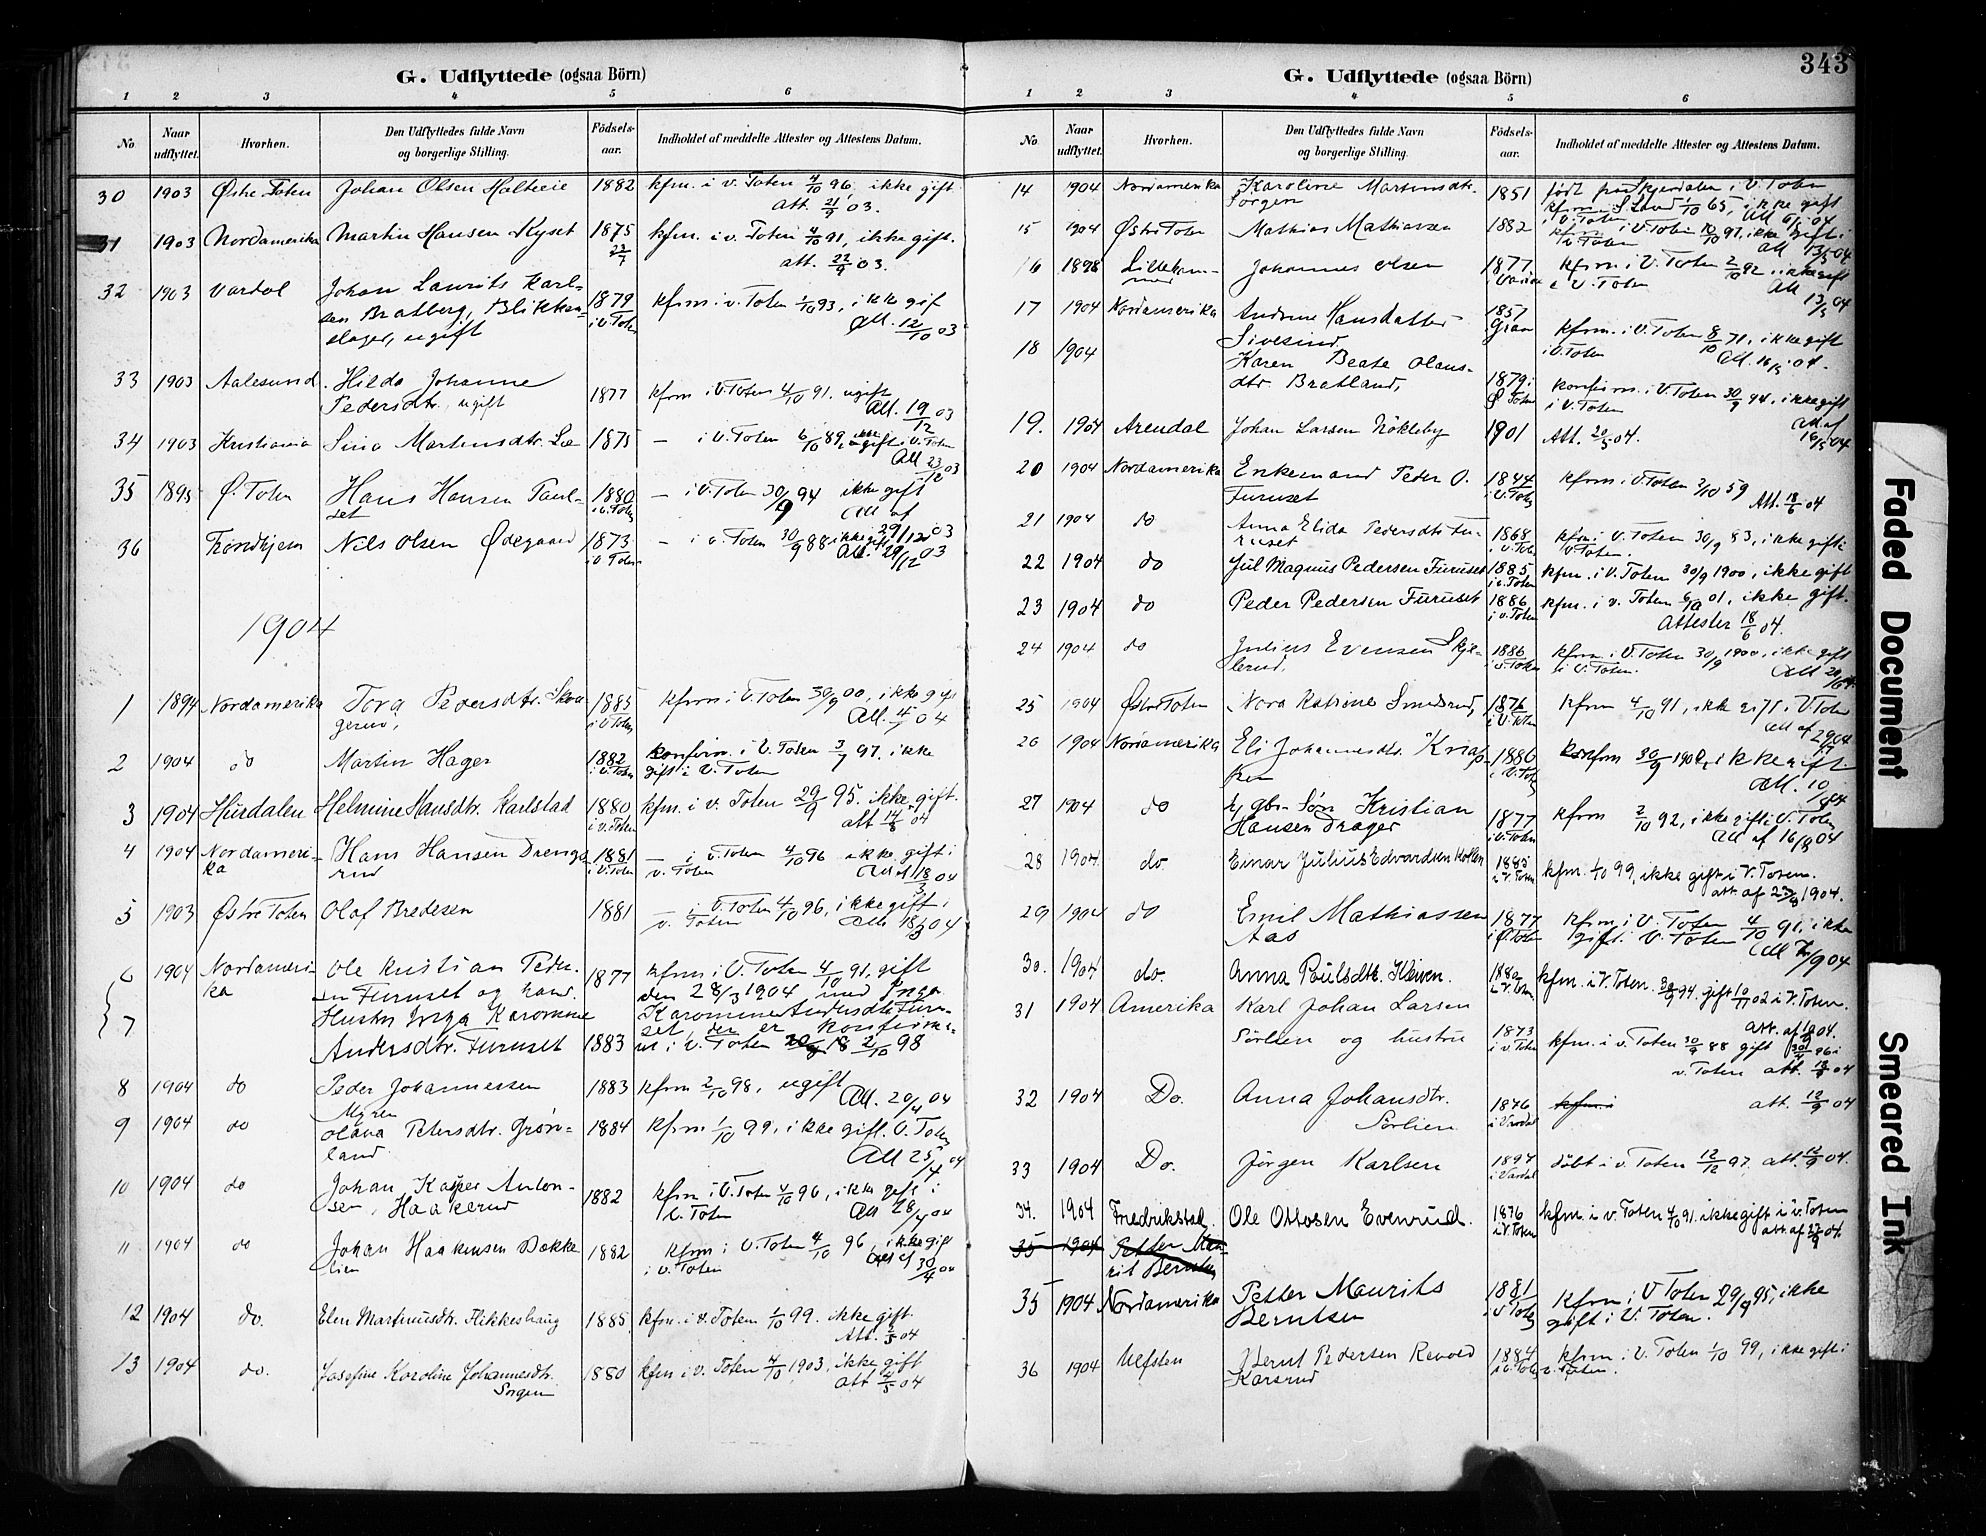 343
G. Udflyttede (ogsaa Börn)
1 2 3 4 5 6
No Naar udflyttet. Hvorhen. Den Udflyttedes fulde Navn og borgerlige Stilling. Födsels-aar. Indholdet af meddelte Attester og Attestens Datum.
30 1903 Østre Toten Johan Olsen 1882 kfm. i v. Toten 4/10 96, ikke gift.
att. 21/9 03.
31 1903 Nordamerika Martin Hansen Kyset 1875 kfm. i v. Toten 4/10 91, ikke gift.
att. 22/9 03.
32 1903 Vardal Johan Laurits Karl-
sen Bratberg, Blikken- 1879 kfrm i v. Toten 1/10 93, ikke gif
slager, ugift i V. Toten Att. 12/10 03
33 1903 Aalesund Hilda Johanne
Pedersdtr, ugift 1877 kfrm i V. Toten 4/10 91. ugift
Att. 19/12 03
34 1903 Kristiania Martinsdtr. 1875 — i V. Toten 6/10 89, ikke gift i V. Toten
Att 23/12 03
35 1895 Ø. Toten Hans Hansen Paul-
set 1880 i v. Toten — i V. Toten 30/9 94 ikke gift
Att af 29/12 03
36 Trondhjem Nils Olsen Ødegaard 1873 i V. Toten — i v. Toten 30/9 88 ikke gift
Att. 29/12 03
1904
1 1894 Nordamerika Tora Pedersdtr. Skou
gerud, 1885 i V. Toten kfrm i V. Toten 30/9 00, ikke gift
2 1904 do Martin Hager 1882 i V. Toten konfirm. i V. Toten 97. ikke
gift i V. Toten
3 1904 Hurdalen Helmine Hansdtr. Karlstad 1880 i v. Toten kfm. i v. Toten 29/9 95. ikke gift.
att 04
4 1904 Nordameri-
ka Hans Hansen Drenge
rud 1881 i V. Toten — i v. Toten 4/10 96 ikke gift i
v. Toten Att af 18/3 04
5 1903 Østre Toten Olaf Bredesen 1881 — i V. Toten 4/10 96, ikke gift i
v. Toten Att 18/3 04
6 1904 Nordameri-
ka Ole Kristian Peder-
sen Furuset og hans 1877 kfrm i V. Toten 4/10 91, gift
den 28/3 1904 med Inga
7 Hustru Inga Karomine Karomine Andersdtr Furu-
set, der er konfirme-
Andersdtr. Furuset 1883 ret i v. Toten 2/10 98
8 1904 do Peder Johannessen
Myren 1883 kfrm 2/10 98, ugift
Att. 20/4 04
9 1904 do Olava Petersdtr. Grøn-
land 1884 kfrm 1/10 99, ikke gift. V. Toten
Att 25/4 04
10 1904 do Johan Kasper Anton-
sen, Haakerud 1882 kfrm i V. Toten 4/10 96, ikke gift i
V. Toten Att 28/4 04
11 1904 do Johan Haakensen Bakke
lien 1882 kfrm i V. Toten 4/10 96, ikke gift
i v. Toten Att af 30/4 04
12 1904 do. Elen Martinusdtr. Flikkeshaug 1885 kfm. i v. Toten 1/10 99. ikke gift
Att. 04
13 1904 do. Josefine Karoline Johannesdtr.
Sørgen 1880 kfm i v. Toten 4/10 1903, ikke gift
att 4/5 04
G. Udflyttede (ogsaa Börn)
1 2 3 4 5 6
No Naar udflyttet. Hvorhen. Den Udflyttedes fulde Navn og borgerlige Stilling. Födsels-aar. Indholdet af meddelte Attester og Attestens Datum.
14 1904 Nordamerika Karoline Martinsdtr.
Sørgen 1851 født i V. Toten
kfrm i S. Land 1/10 65, ikke gift
i V. Toten Att 6/5 04
15 1904 Østre Toten Mathias Mathiassen 1882 kfm i V. Toten 10/10 97, ikke gift i
v. Toten Att 13/5 04
16 1898 Lilleham-
mer Johannes Olsen 1877 kfrm. i V. Toten 2/10 92, ikke gift
i V. Toten Att 13/5 04
17 1904 Nordamerika Andrine Hansdatter
Sivesind 1857 Gran kfrm. i V. Toten 8/10 71, ikke gift
i V. Toten Att. 16/5 04.
18 1904 Karen Beate Olaus-
dtr. Bratland, 1879 i Ø Toten konfirm. i V. Toten 30/9 94, ikke gift
i V. Toten Att af 16/5 04
19. 1904 Arendal Johan Larsen Nökleby 1901 Att. 20/5 04.
20 1904 Nordamerika Enkemand Peder O.
Furuset 1844 i V. Toten kfrm i V. Toten 2/10 59
Att. 18/6 04
21 1904 do Anna Elida Pedersdtr Fu-
ruset 1868 i v. Toten kfm. i V. Toten 30/9 83, ikke gift i
V. Toten.
22 1904 do Jul Magnus Pedersen Furuset 1885 i v. Toten kfm. i V. Toten 30/9 1900, ikke gift
23 1904 do Peder Pedersen Furuset 1886 i v. Toten kfm. i v. Toten 6/10 01, ikke gift.
Attester 18/6 04.
24 1904 do Julius Evensen Skje-
lerud, 1886 i v. Toten kfrm i V. Toten 30/9 1900, ikke gift
i V. Toten.
25 1904 Østre Toten Nora Katrine Smedsrud, 1876 i V. Toten kfrm 4/10 91, ikke gift i V Toten
26 1904 Nordamerika Eli Johannesdtr. Knap-
ken 1886 i V. Toten konfrm 30/9 1900, ikke gift.
27 1904 do gbr. Søn Kristian
Hansen Drager 1877 i v. Toten kfrm 2/10 92, ikke gift i V. Toten
Att af 16/8 04
28 1904. do. Einar Julius Edvardsen Kolken 1885 i V. Toten kfm. 1/10 99, ikke gift i V. Toten.
att. af 23/8 1904.
29 1904 do Emil Mathiassen
Aas 1877 i Ø. Toten kfrm i V. Toten 4/10 91, ikke
gift i V. Toten
30. 1904 do. Anna Poulsdtr. 1880 i V. Toten kfm. i V. Toten. 30/9 94. gift 02 i V. Toten.
31 1904 Amerika Karl Johan Larsen
Sörlien og hustru 1873 i v. Toten kfm. i v. Toten 30/9 88 gift 96 i
v. Toten att. 04
32 1904 Do. Anna Johansdtr.
Sörlien 1876 i Vardal kfm. i att. 12/9 04
33 1904 Do. Jörgen Karlsen 1897 i Vardal döbt i v. Toten 12/12 97, att. 12/9 04.
34. 1904 Fredrikstad. Ole Ottosen Evenrud. 1876 i V. Toten kfm. i v. Toten 4/10 91. ikke gift i v. Toten
35 1904 Petter Mau-
rit Berntsen
35 1904 Nordamerika Petter Maurits
Berntsen 1881 i V. Toten kfrm i V Toten 29/9 95, ikke
gift i V. Toten.
36 1904 Vefsten Bernt Pedersen
1884 i v. Toten kfrm. i V. Toten 1/10 99, ikke gift i
v. Toten.
Faded Document
Smeared Ink